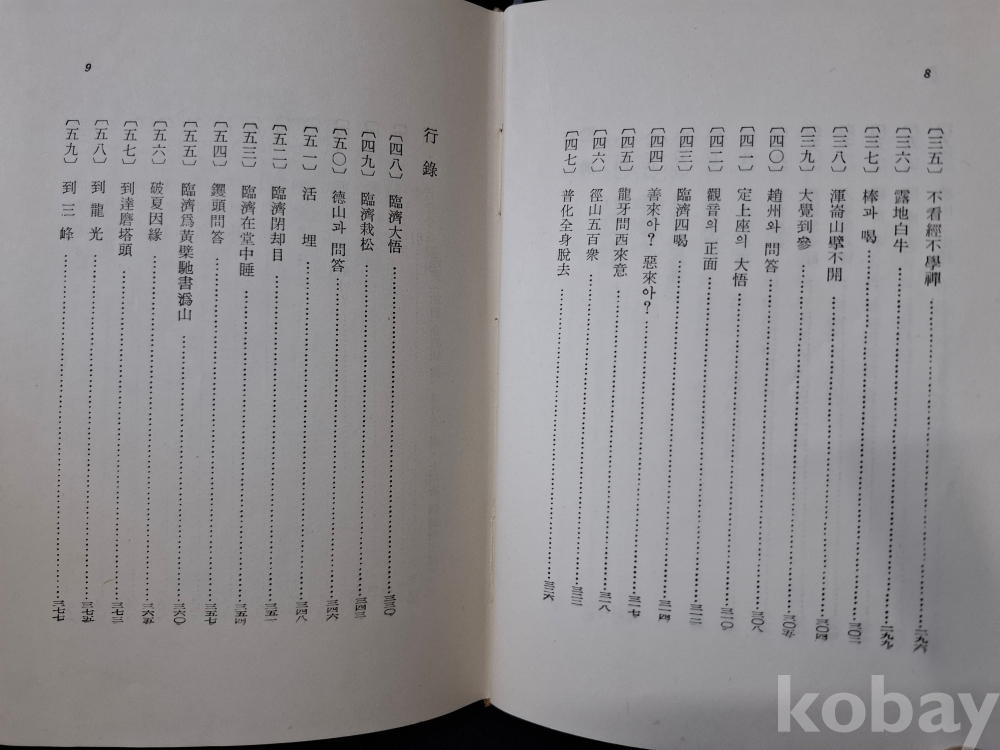 8
〔三五〕 不看經不學禪 二九六
〔三六〕 露地白牛 二九九
〔三七〕 棒과 喝 三〇二
〔三八〕 渾崙山擘不開 三〇四
〔三九〕 大覺到參 三〇五
〔四〇〕 趙州와 問答 三〇八
〔四一〕 定上座의 大悟
〔四二〕 觀音의 正面 三一二
〔四三〕 臨濟四喝
〔四四〕 善來아? 惡來아? 三一四
〔四五〕 龍牙問西來意 三一七
〔四六〕 徑山五百衆 三一八
〔四七〕 普化全身脫去
9
行錄
〔四八〕 臨濟大悟 三三〇
〔四九〕 臨濟栽松 三四三
〔五〇〕 德山과 問答 三四六
〔五一〕 活埋 三四八
〔五二〕 臨濟閉却目 三五一
〔五三〕 臨濟在堂中睡 三五四
〔五四〕 钁頭問答 三五七
〔五五〕 臨濟爲黃檗馳書潙山 三六〇
〔五六〕 破夏因緣 三六五
〔五七〕 到達磨塔頭 三七三
〔五八〕 到龍光 三七五
〔五九〕 到三峰 三七七
kobay